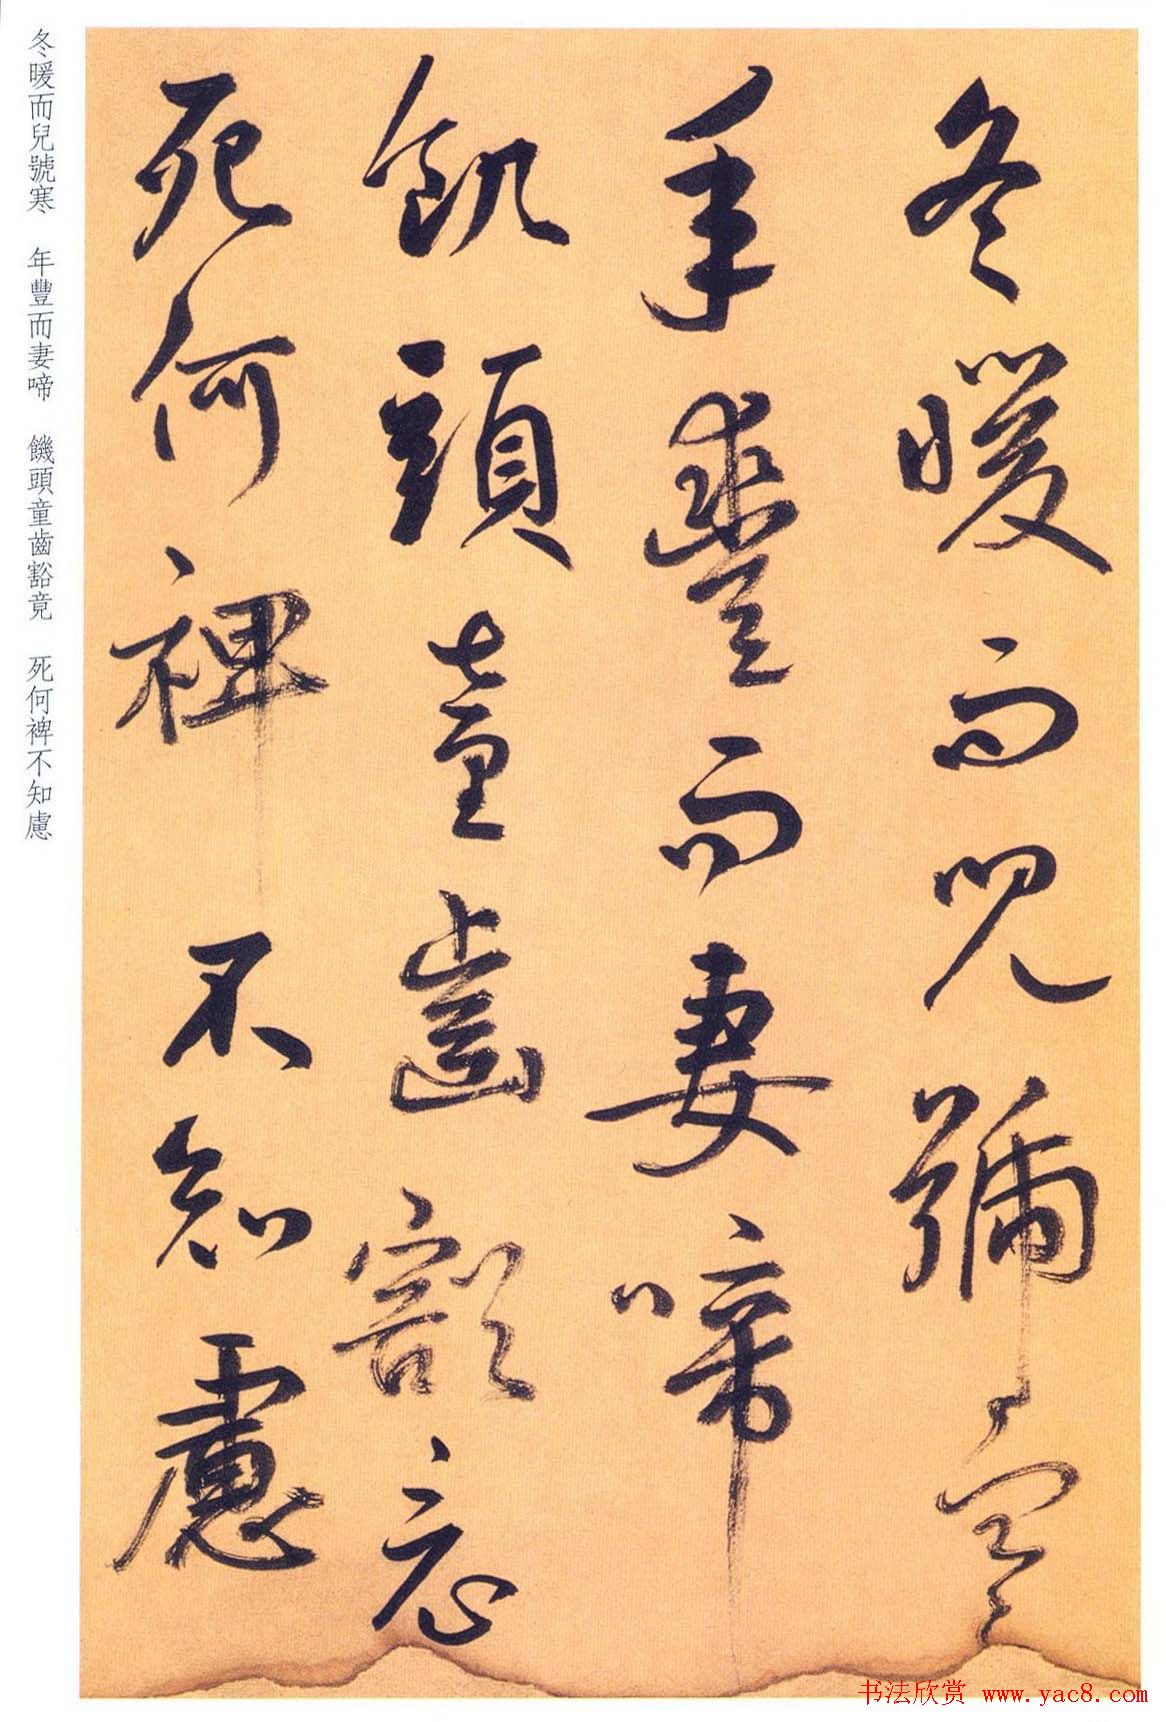 冬暖而兒號寒
年豐而妻啼
飢頭童齒豁竟
死何裨不知慮
冬暖而兒號寒 年豐而妻啼 饑頭童齒豁竟 死何裨不知慮
书法欣赏 www.yac8.com